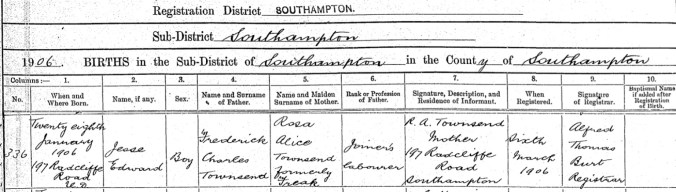 Registration District SOUTHAMPTON.
Sub-District Southampton
1906. BIRTHS in the Sub-District of Southampton in the County of Southampton
Columns:— 1. 2. 3. 4. 5. 6. 7. 8. 9. 10.
No. When and Where Born. Name, if any. Sex. Name and Surname of Father. Name and Maiden Surname of Mother. Rank or Profession of Father. Signature, Description, and Residence of Informant. When Registered. Signature of Registrar. Baptismal Name if added after Registration of Birth.
336
Twenty eighth
January
1906
197 Radcliffe
Road
U.D.
Jesse
Edward
Boy
Frederick
Charles
Townsend
Rosa
Alice
Townsend
formerly
Freak
Joiner's
Labourer
R. A. Townsend
Mother
197 Radcliffe
Road
Southampton
Sixth
March
1906
Alfred
Thomas
Burt
Registrar